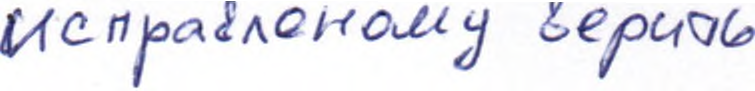 исправленому верить